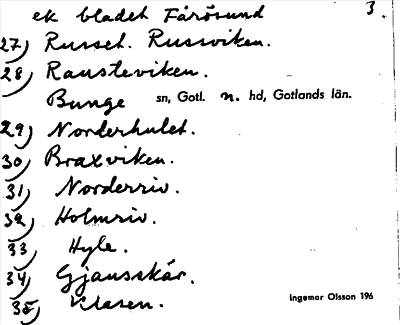 ek bladet Fårösund 3.
27) Russet. Russviken.
28) Rausteviken.
Bunge sn, Gotl. n. hd, Gotlands län.
29) Norderhulet.
30) Braxviken.
31) Norderriv.
32) Holmriv.
33) Hyle.
34) Gjausskär.
35) Klasen.
Ingemar Olsson 196